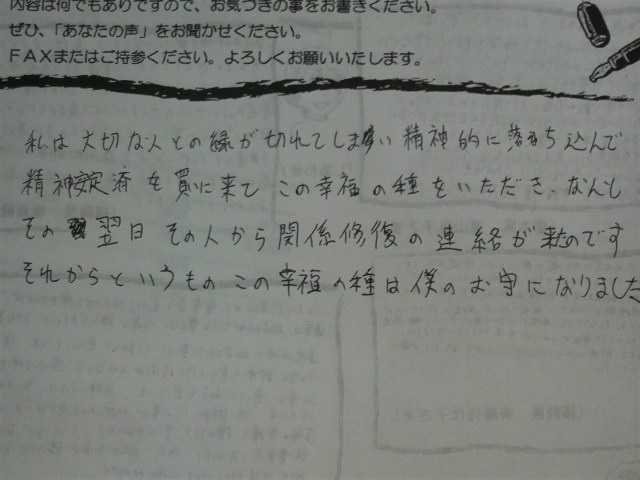 内容は何でもありですので、お気づきの事をお書きください。
ぜひ、「あなたの声」をお聞かせください。
FAXまたはご持参ください。よろしくお願いいたします。
私は大切な人との縁が切れてしまい精神的に落ち込んで
精神安定剤を買いに来て この幸福の種をいただき、なんと
その翌日 その人から関係修復の連絡が来たのです
それからというもの この幸福の種は僕のお守になりました